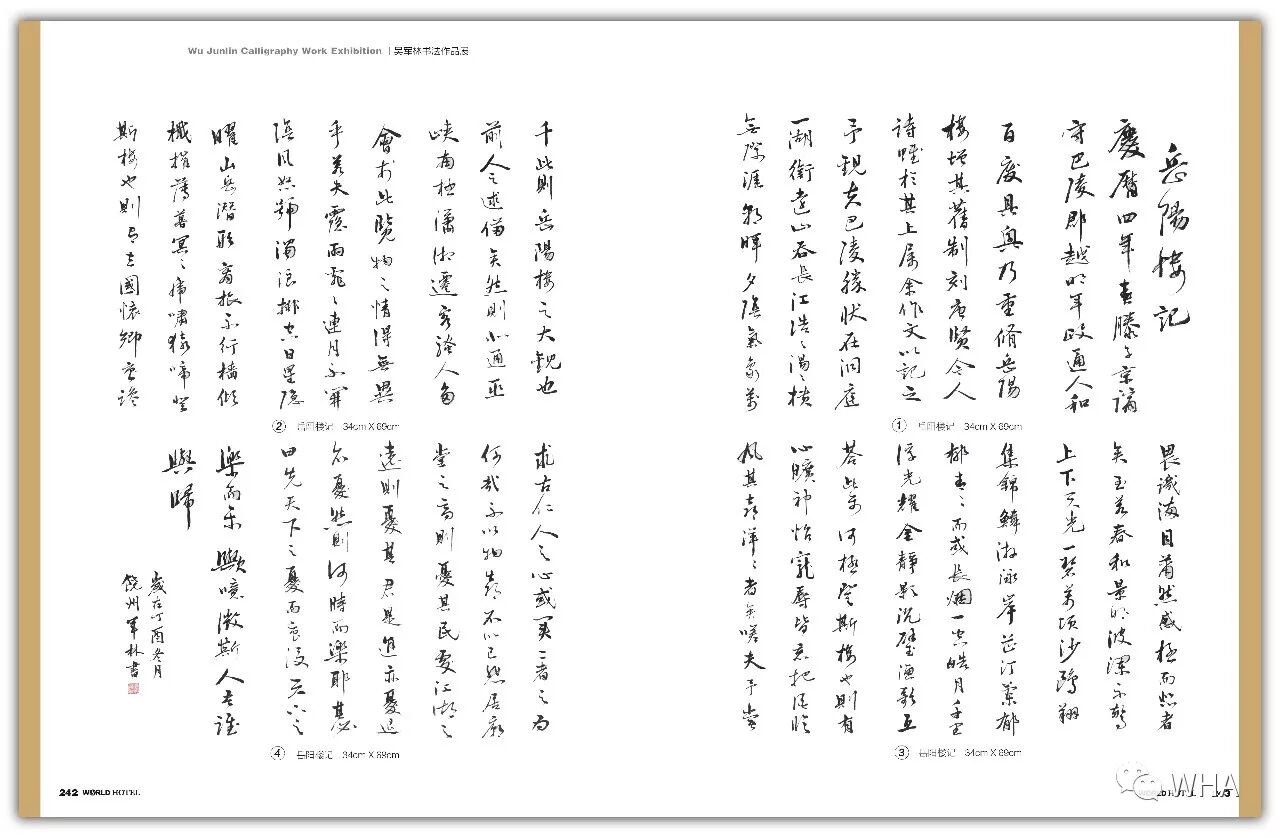 Wu Junlin Calligraphy Work Exhibition | 吴军林书法作品展
岳陽樓記
慶曆四年春滕子京謫
守巴陵郡越明年政通人和
百废具興乃重修岳陽
樓增其舊制刻唐賢今人
詩賦於其上属余作文以記之
予觀夫巴陵勝状在洞庭
一湖銜遠山吞長江浩々湯々横
無際涯朝暉夕陰氣象萬
① 岳阳楼记 34cm X 69cm
千此則岳陽樓之大觀也
前人之述備矣然則北通巫
峡南極瀟湘遷客騷人多
會於此覽物之情得無異
乎若夫霪雨霏々連月不開
陰風怒號濁浪排空日星隐
曜山岳潛形商旅不行檣傾
檝摧薄暮冥々虎嘯猿啼登
斯樓也則有去國懷鄉憂讒
② 岳阳楼记 34cm X 69cm
畏譏滿目蕭然感極而悲者
矣至若春和景明波瀾不驚
上下天光一碧萬頃沙鷗翔
集錦鱗游泳岸芷汀蘭郁
郁青々而或長烟一空皓月千里
浮光耀金靜影沉璧漁歌互
答此樂何極登斯樓也則有
心曠神怡寵辱皆忘把酒臨
風其喜洋々者矣嗟夫予嘗
③ 岳阳楼记 34cm X 69cm
求古仁人之心或異二者之為
何哉不以物喜不以己悲居廟
堂之高則憂其民處江湖之
遠則憂其君是進亦憂退
亦憂然則何時而樂耶其必
曰先天下之憂而哀後天下之
樂而樂歟噫微斯人吾誰
與歸
歲在丁酉冬月
饶州軍林書
④ 岳阳楼记 34cm X 69cm
242 WORLD HOTEL
WHA